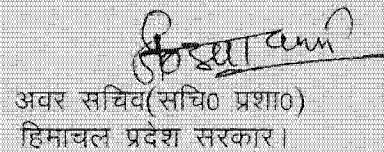 अवर सचिव(सचि0 प्रशा0)
हिमाचल प्रदेश सरकार।